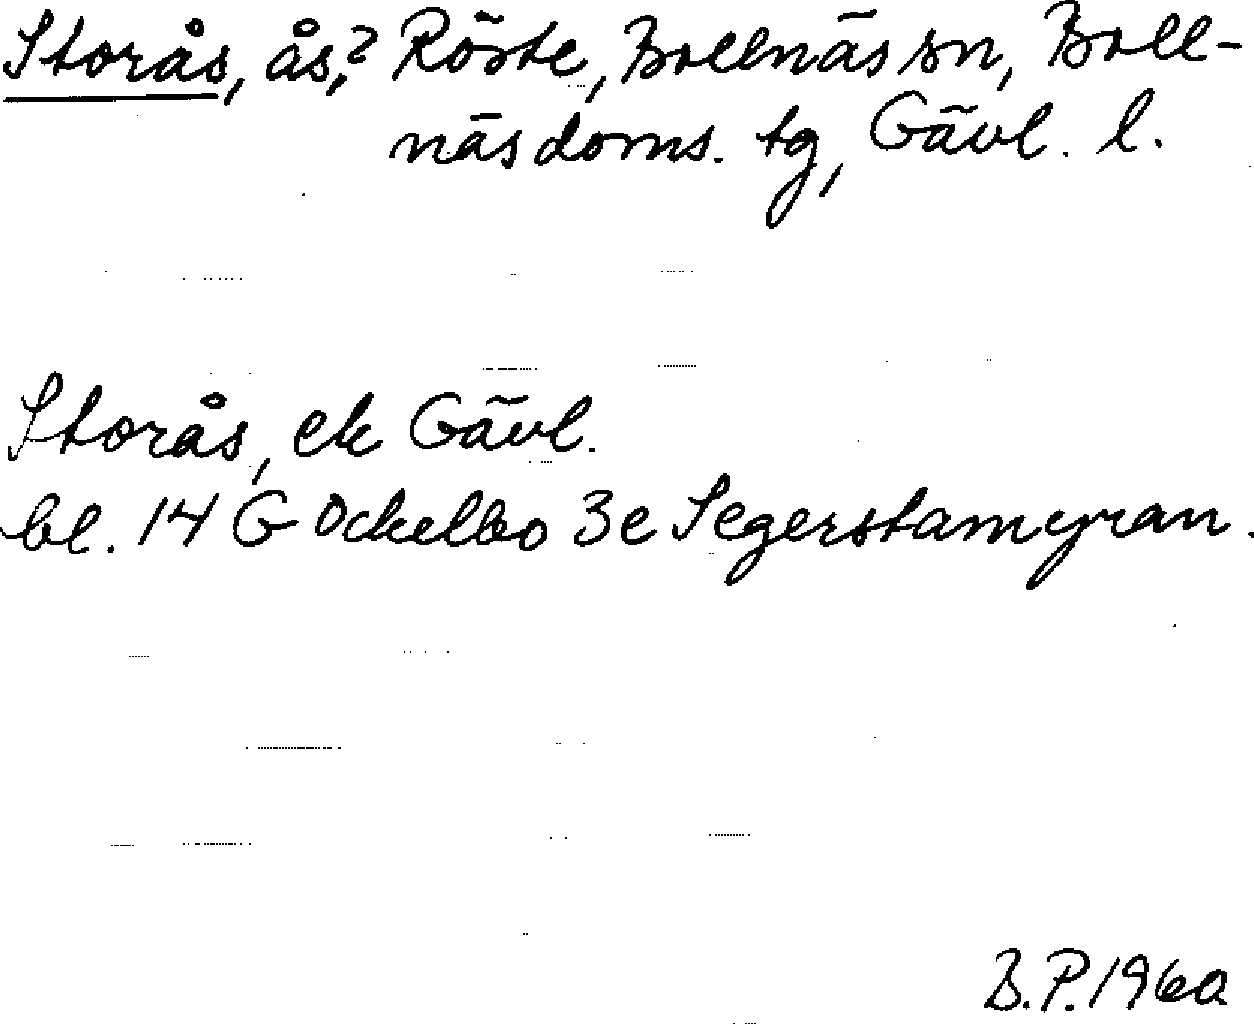 Storås, ås,? Röste, Bollnäs sn, Boll-
näs doms. tg, Gävl. l.
Storås, ek Gävl.
bl. 14 G Ockelbo 3e Segerstamyran.
B.P. 1960